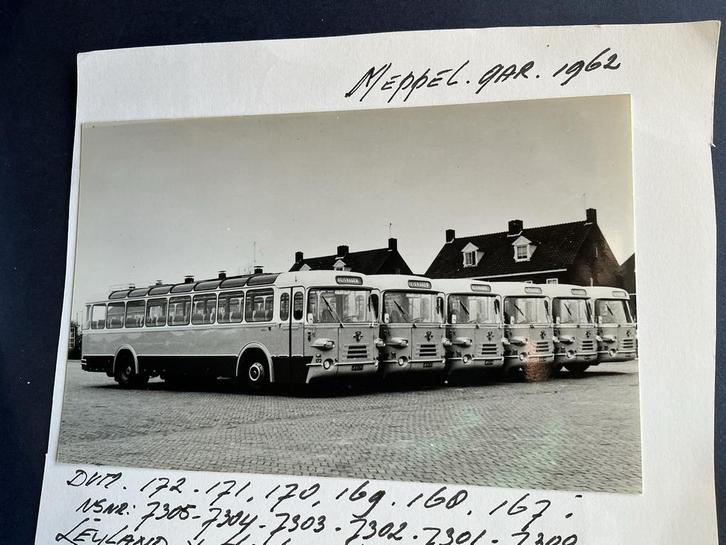 MEPPEL. GAR. 1962
REISWAGEN
DVM. 172 - 171. 170, 169. 168. 167 :
NSNR: 7305 - 7304 - 7303 - 7302 - 7301 - 7300
LEYLAND